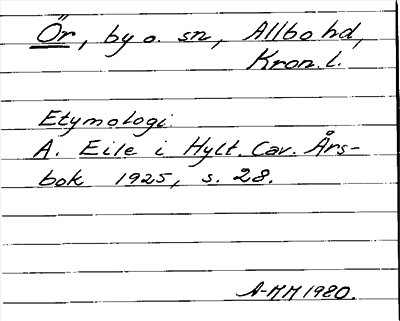 Ör, by o. sn, Allbo hd,
Kron. l.
Etymologi
A. Eile i Hylt. Cav. Års-
bok 1925, s. 28.
A-MM 1980.